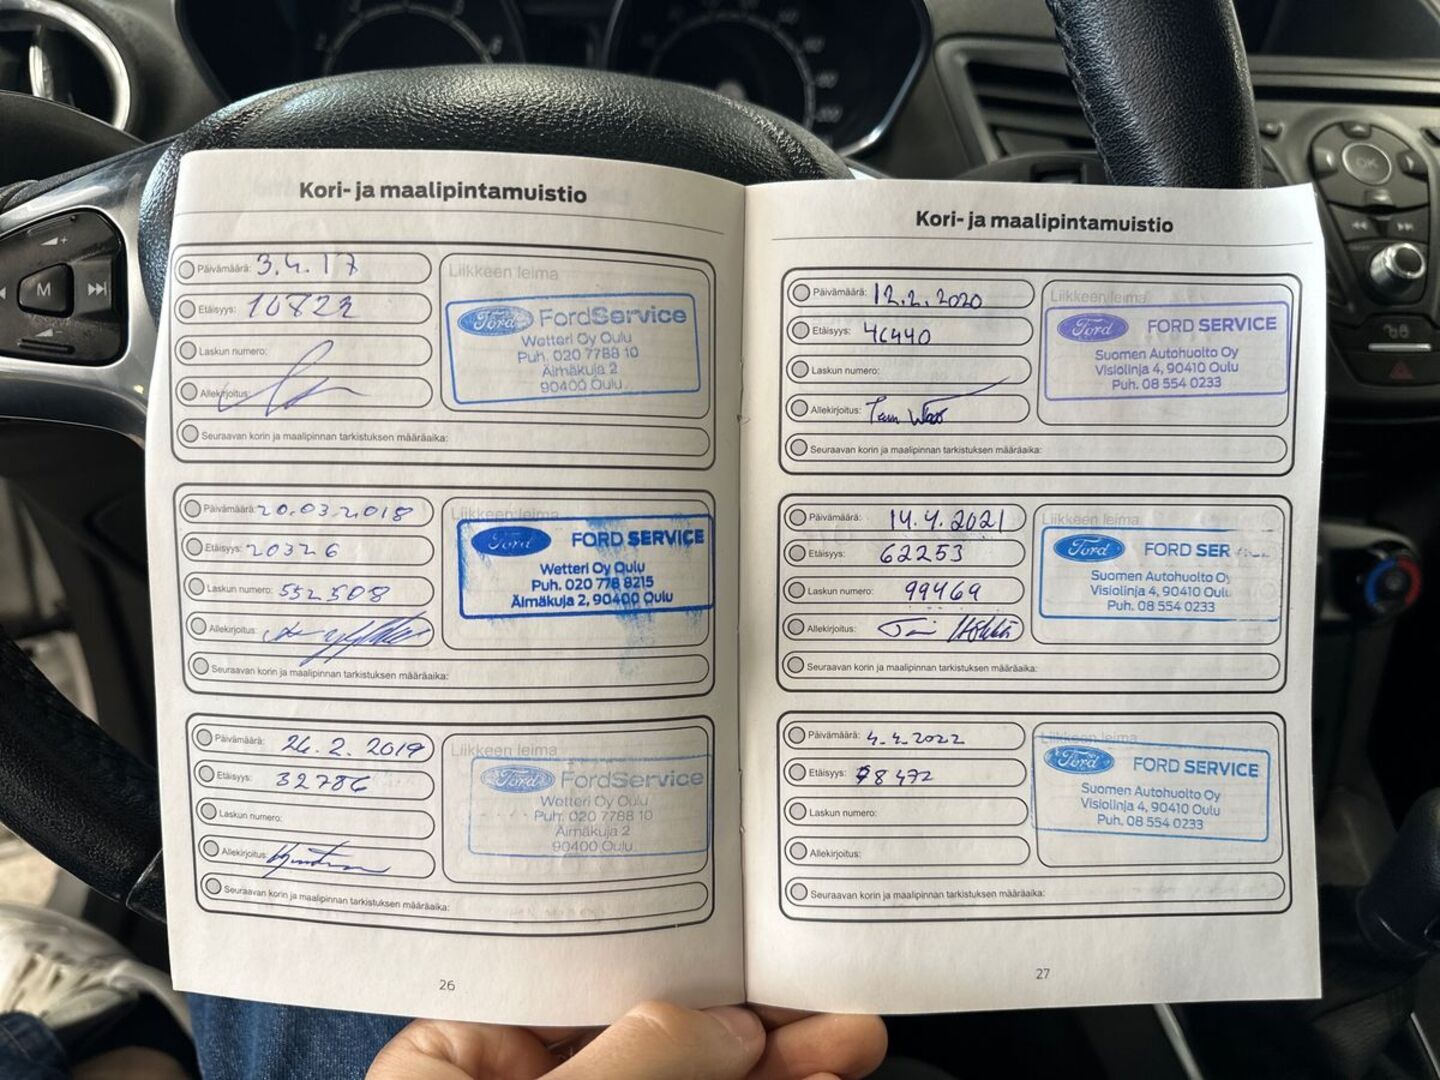 Kori- ja maalipintamuistio
Päivämäärä: 3.4.17
Etäisyys: 10822
Laskun numero:
Allekirjoitus:
Seuraavan korin ja maalipinnan tarkistuksen määräaika:
Liikkeen leima
Ford FordService
Wetteri Oy Oulu
Puh. 020 7788 10
Äimäkuja 2
90400 Oulu
Päivämäärä: 20.03.2018
Etäisyys: 20326
Laskun numero: 552508
Allekirjoitus:
Seuraavan korin ja maalipinnan tarkistuksen määräaika:
Liikkeen leima
Ford FORD SERVICE
Wetteri Oy Oulu
Puh. 020 778 8215
Äimäkuja 2, 90400 Oulu
Päivämäärä: 26.2.2019
Etäisyys: 32786
Laskun numero:
Allekirjoitus:
Seuraavan korin ja maalipinnan tarkistuksen määräaika:
Liikkeen leima
Ford FordService
Wetteri Oy Oulu
Puh. 020 7788 10
Äimäkuja 2
90400 Oulu
26
Kori- ja maalipintamuistio
Päivämäärä: 12.2.2020
Etäisyys: 46440
Laskun numero:
Allekirjoitus:
Seuraavan korin ja maalipinnan tarkistuksen määräaika:
Liikkeen leima
Ford FORD SERVICE
Suomen Autohuolto Oy
Visiolinja 4, 90410 Oulu
Puh. 08 554 0233
Päivämäärä: 14.4.2021
Etäisyys: 62253
Laskun numero: 99469
Allekirjoitus:
Seuraavan korin ja maalipinnan tarkistuksen määräaika:
Liikkeen leima
Ford FORD SER
Suomen Autohuolto Oy
Visiolinja 4, 90410 Oulu
Puh. 08 554 0233
Päivämäärä: 4.4.2022
Etäisyys: 78472
Laskun numero:
Allekirjoitus:
Seuraavan korin ja maalipinnan tarkistuksen määräaika:
Liikkeen leima
Ford FORD SERVICE
Suomen Autohuolto Oy
Visiolinja 4, 90410 Oulu
Puh. 08 554 0233
27
M
OK